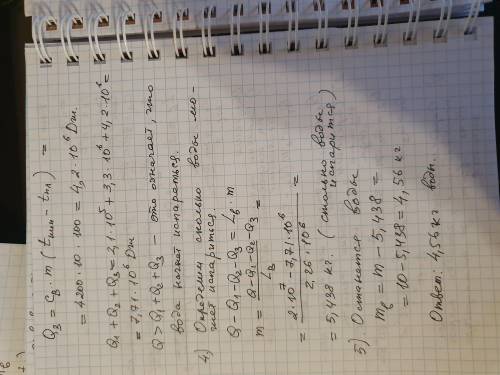 Q₃ = c_в · m (t_кип − t_пл) =
= 4200 · 10 · 100 = 4,2 · 10⁶ Дж.
Q₁ + Q₂ + Q₃ = 2,1 · 10⁵ + 3,3 · 10⁶ + 4,2 · 10⁶ =
= 7,71 · 10⁶ Дж.
Q > Q₁ + Q₂ + Q₃ – это означает, что
вода начнет испаряться.
4) Определим сколько воды мо-
жет испариться.
Q − Q₁ − Q₂ − Q₃ = L_в · m
m = (Q − Q₁ − Q₂ − Q₃) / L_в =
= (2 · 10⁷ − 7,71 · 10⁶) / (2,26 · 10⁶) =
= 5,438 кг. (столько воды
испарится)
5) Останется воды
m_в = m − 5,438 =
= 10 − 5,438 = 4,56 кг
Ответ: 4,56 кг воды.